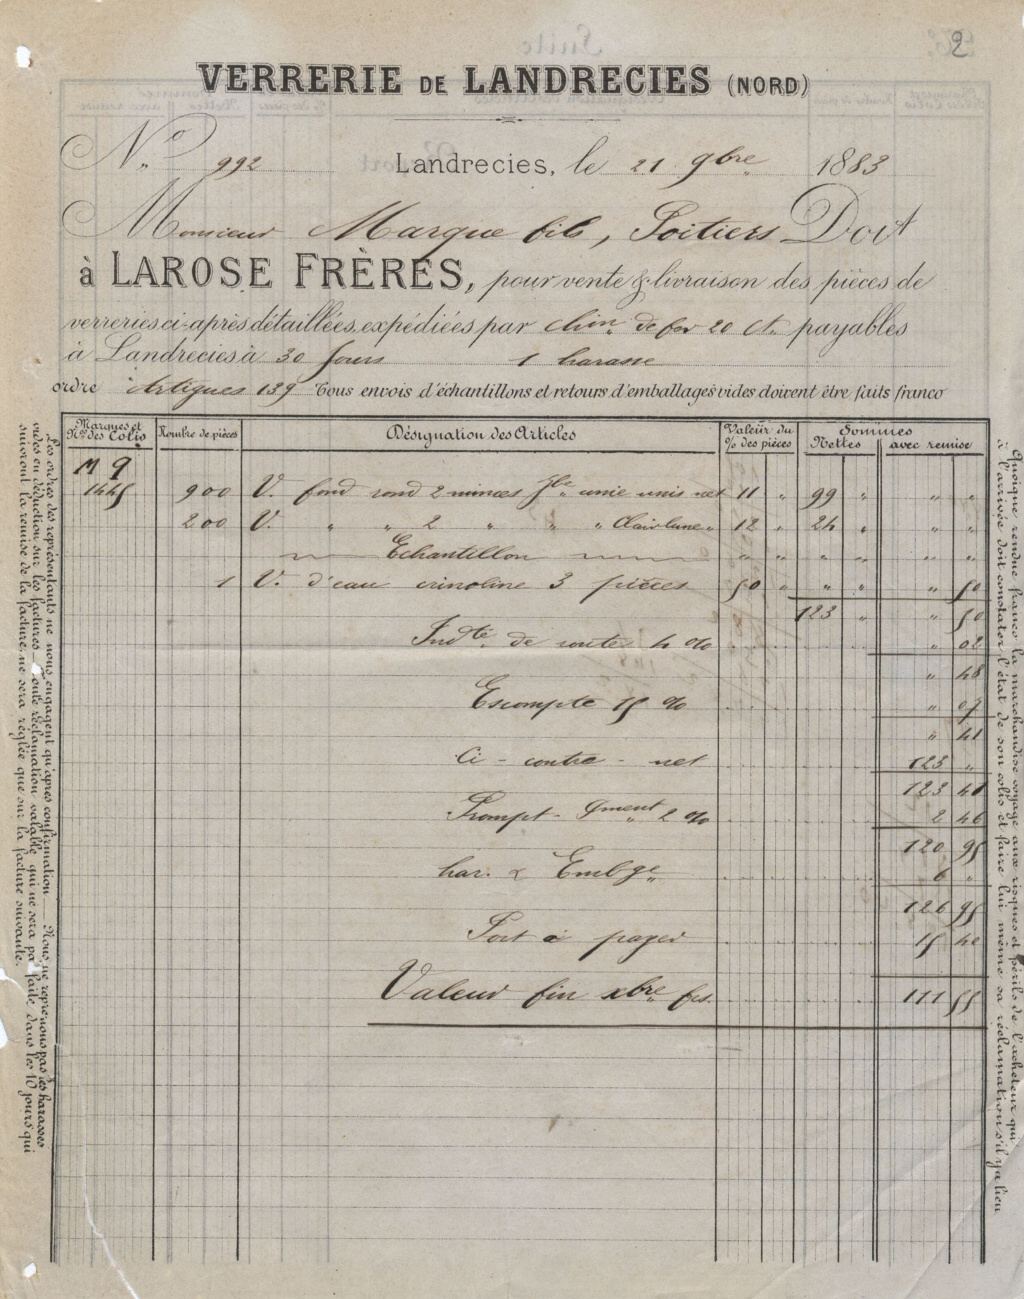 2
VERRERIE DE LANDRECIES (NORD)
No 992 Landrecies, le 21 9bre 1883
Monsieur Marque fils, Poitiers Doit
à LAROSE FRÈRES, pour vente & livraison des pièces de
verreries ci-après détaillées, expédiées par chin de fer 20 Ct. payables
à Landrecies à 30 jours 1 harasse
ordre Artigues 139 Tous envois d'échantillons et retours d'emballages vides doivent être faits franco
Marques et Nos des Colis Nombre de pièces Désignation des Articles Valeur du % des pièces Sommes Nettes avec remise
M 9
1445 900 V. fond rond 2 minces Jbe unie unis net 11 " 99 " " "
200 V. " " 2 " " " Clairlune " 12 " 24 " " "
Echantillon " " " " " "
1 V. d'eau crinoline 3 pièces 50 " " " " 50
123 " " 50
Indté de route 4 % " 02
" 48
Escompte 15 % " 07
" 41
Ci - contre - net 123 "
123 41
Prompt - pment 2 % 2 46
120 95
har. & Embge 6 "
126 95
Port à payer 15 40
Valeur fin xbre frs. 111 55
Les ordres des représentants ne nous engagent qu'après confirmation — Nous ne reprenons pas les harasses
vides en déduction sur les factures — Toute réclamation valable qui ne sera pas faite, dans les 10 jours qui
suivront la remise de la facture, ne sera réglée que sur la facture suivante.
Quoique rendue franco la marchandise voyage aux risques et périls de l'acheteur qui
à l'arrivée doit constater l'état de son colis et faire lui même sa réclamation s'il y a lieu